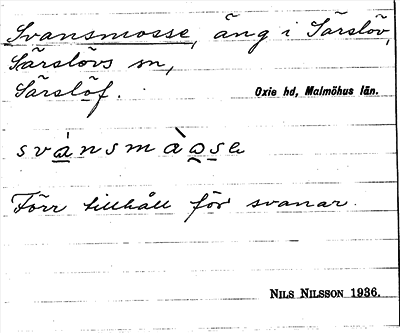 Svansmosse, äng i Särslöv,
Särslövs sn,
Särslöf.
Oxie hd, Malmöhus län.
svánsmàose
Förr tillhåll för svanar.
NILS NILSSON 1936.